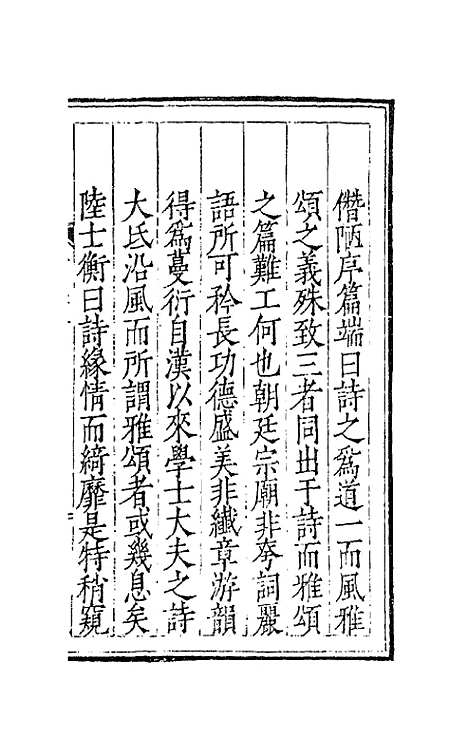 僭陋序篇端曰詩之爲道一而風雅
頌之義殊致三者同出于詩而雅頌
之篇難工何也朝廷宗廟非夸詞麗
語所可矜長功德盛美非纖章游韻
得爲蔓衍自漢以來學士大夫之詩
大氐沿風而所謂雅頌者或幾息矣
陸士衡曰詩緣情而綺靡是特稍窺